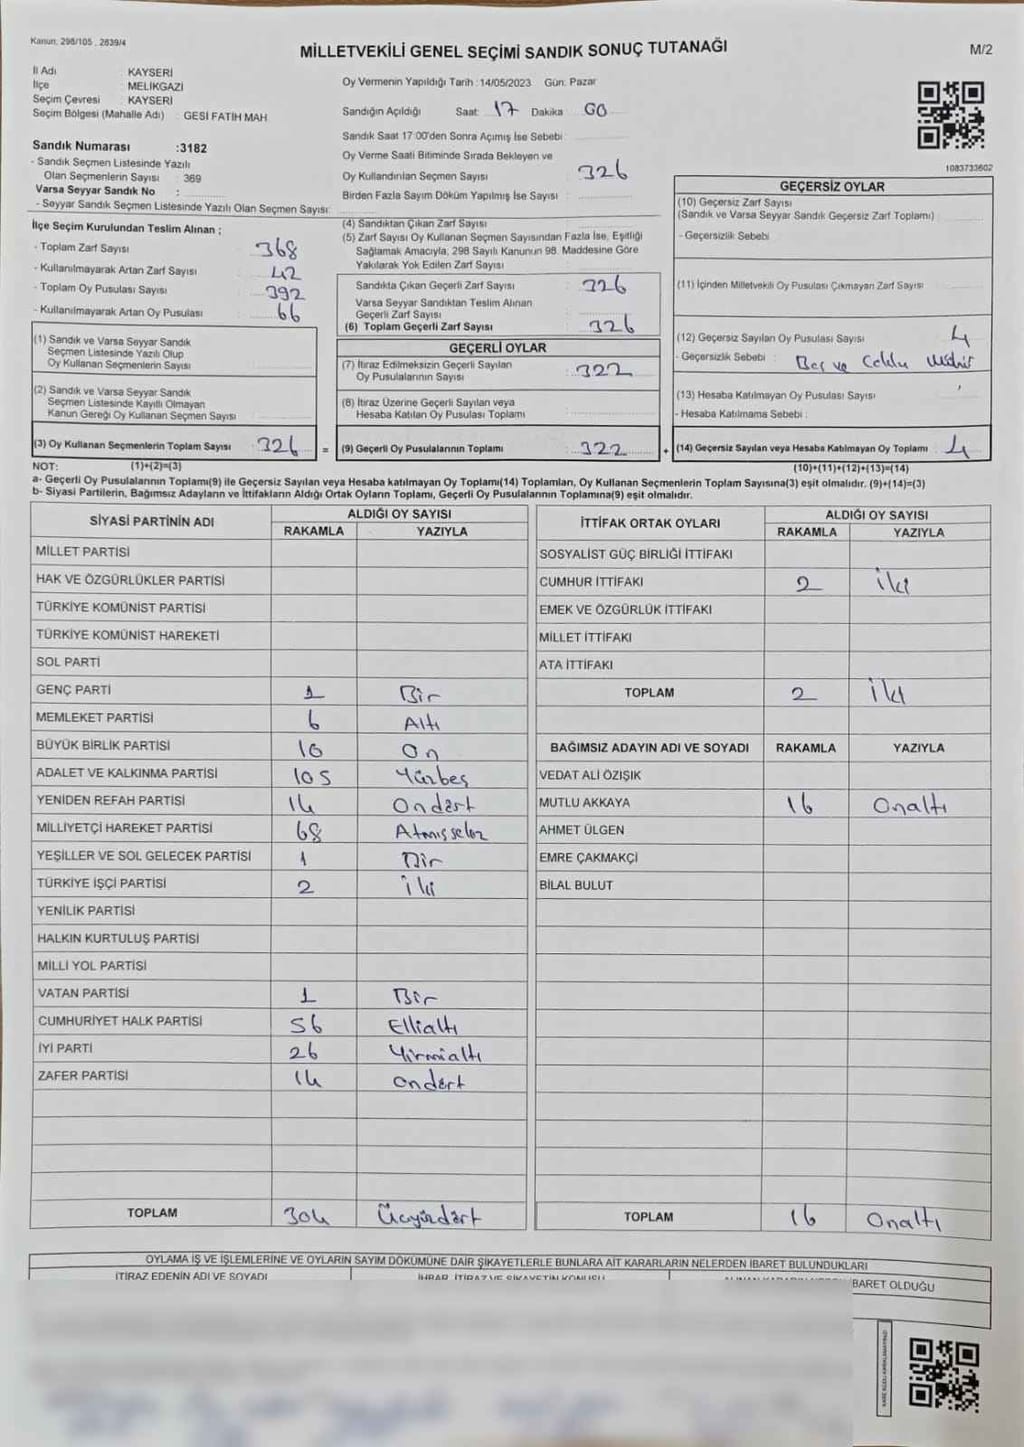 Kanun: 298/105 , 2839/4
MİLLETVEKİLİ GENEL SEÇİMİ SANDIK SONUÇ TUTANAĞI
M/2
İl Adı KAYSERİ
İlçe MELİKGAZİ
Seçim Çevresi KAYSERİ
Seçim Bölgesi (Mahalle Adı) : GESİ FATİH MAH
Oy Vermenin Yapıldığı Tarih : 14/05/2023 Gün: Pazar
Sandığın Açıldığı Saat: 17 Dakika : 00
Sandık Saat 17:00'den Sonra Açımış İse Sebebi
Oy Verme Saati Bitiminde Sırada Bekleyen ve
Oy Kullandırılan Seçmen Sayısı : 326
Birden Fazla Sayım Döküm Yapılmış İse Sayısı :
Sandık Numarası :3182
- Sandık Seçmen Listesinde Yazılı
Olan Seçmenlerin Sayısı : 369
Varsa Seyyar Sandık No :
- Seyyar Sandık Seçmen Listesinde Yazılı Olan Seçmen Sayısı:
İlçe Seçim Kurulundan Teslim Alınan ;
- Toplam Zarf Sayısı 368
- Kullanılmayarak Artan Zarf Sayısı 42
- Toplam Oy Pusulası Sayısı 392
- Kullanılmayarak Artan Oy Pusulası 66
(1) Sandık ve Varsa Seyyar Sandık
Seçmen Listesinde Yazılı Olup
Oy Kullanan Seçmenlerin Sayısı
(2) Sandık ve Varsa Seyyar Sandık
Seçmen Listesinde Kayıtlı Olmayan
Kanun Gereği Oy Kullanan Seçmen Sayısı
(3) Oy Kullanan Seçmenlerin Toplam Sayısı 326
(4) Sandıktan Çıkan Zarf Sayısı
(5) Zarf Sayısı Oy Kullanan Seçmen Sayısından Fazla İse, Eşitliği
Sağlamak Amacıyla, 298 Sayılı Kanunun 98. Maddesine Göre
Yakılarak Yok Edilen Zarf Sayısı
Sandıkta Çıkan Geçerli Zarf Sayısı 326
Varsa Seyyar Sandıktan Teslim Alınan
Geçerli Zarf Sayısı
(6) Toplam Geçerli Zarf Sayısı 326
GEÇERLİ OYLAR
(7) İtiraz Edilmeksizin Geçerli Sayılan
Oy Pusulalarının Sayısı : 322
(8) İtiraz Üzerine Geçerli Sayılan veya
Hesaba Katılan Oy Pusulası Toplamı
= (9) Geçerli Oy Pusulalarının Toplamı : 322
1083733602
GEÇERSİZ OYLAR
(10) Geçersiz Zarf Sayısı
(Sandık ve Varsa Seyyar Sandık Geçersiz Zarf Toplamı) :
- Geçersizlik Sebebi
(11) İçinden Milletvekili Oy Pusulası Çıkmayan Zarf Sayısı
(12) Geçersiz Sayılan Oy Pusulası Sayısı : 4
- Geçersizlik Sebebi : Boş ve
(13) Hesaba Katılmayan Oy Pusulası Sayısı
- Hesaba Katılmama Sebebi :
+ (14) Geçersiz Sayılan veya Hesaba Katılmayan Oy Toplamı : 4
NOT: (1)+(2)=(3)
(10)+(11)+(12)+(13)=(14)
a- Geçerli Oy Pusulalarının Toplamı(9) ile Geçersiz Sayılan veya Hesaba katılmayan Oy Toplamı(14) Toplamları, Oy Kullanan Seçmenlerin Toplam Sayısına(3) eşit olmalıdır. (9)+(14)=(3)
b- Siyasi Partilerin, Bağımsız Adayların ve İttifakların Aldığı Ortak Oyların Toplamı, Geçerli Oy Pusulalarının Toplamına(9) eşit olmalıdır.
SİYASİ PARTİNİN ADI ALDIĞI OY SAYISI
RAKAMLA YAZIYLA
MİLLET PARTİSİ
HAK VE ÖZGÜRLÜKLER PARTİSİ
TÜRKİYE KOMÜNİST PARTİSİ
TÜRKİYE KOMÜNİST HAREKETİ
SOL PARTİ
GENÇ PARTİ 1 Bir
MEMLEKET PARTİSİ 6 Altı
BÜYÜK BİRLİK PARTİSİ 10 On
ADALET VE KALKINMA PARTİSİ 105 Yüzbeş
YENİDEN REFAH PARTİSİ 14 Ondört
MİLLİYETÇİ HAREKET PARTİSİ 68 Atmışsekiz
YEŞİLLER VE SOL GELECEK PARTİSİ 1 Bir
TÜRKİYE İŞÇİ PARTİSİ 2 İki
YENİLİK PARTİSİ
HALKIN KURTULUŞ PARTİSİ
MİLLİ YOL PARTİSİ
VATAN PARTİSİ 1 Bir
CUMHURİYET HALK PARTİSİ 56 Ellialtı
İYİ PARTİ 26 Yirmialtı
ZAFER PARTİSİ 14 Ondört
TOPLAM 304 Üçyüzdört
İTTİFAK ORTAK OYLARI ALDIĞI OY SAYISI
RAKAMLA YAZIYLA
SOSYALİST GÜÇ BİRLİĞİ İTTİFAKI
CUMHUR İTTİFAKI 2 İki
EMEK VE ÖZGÜRLÜK İTTİFAKI
MİLLET İTTİFAKI
ATA İTTİFAKI
TOPLAM 2 İki
BAĞIMSIZ ADAYIN ADI VE SOYADI RAKAMLA YAZIYLA
VEDAT ALİ ÖZIŞIK
MUTLU AKKAYA 16 Onaltı
AHMET ÜLGEN
EMRE ÇAKMAKÇİ
BİLAL BULUT
TOPLAM 16 Onaltı
OYLAMA İŞ VE İŞLEMLERİNE VE OYLARIN SAYIM DÖKÜMÜNE DAİR ŞİKAYETLERLE BUNLARA AİT KARARLARIN NELERDEN İBARET BULUNDUKLARI
İTİRAZ EDENİN ADI VE SOYADI İHBAR, İTİRAZ VE ŞİKAYETİN KONUSU
BARET OLDUĞU